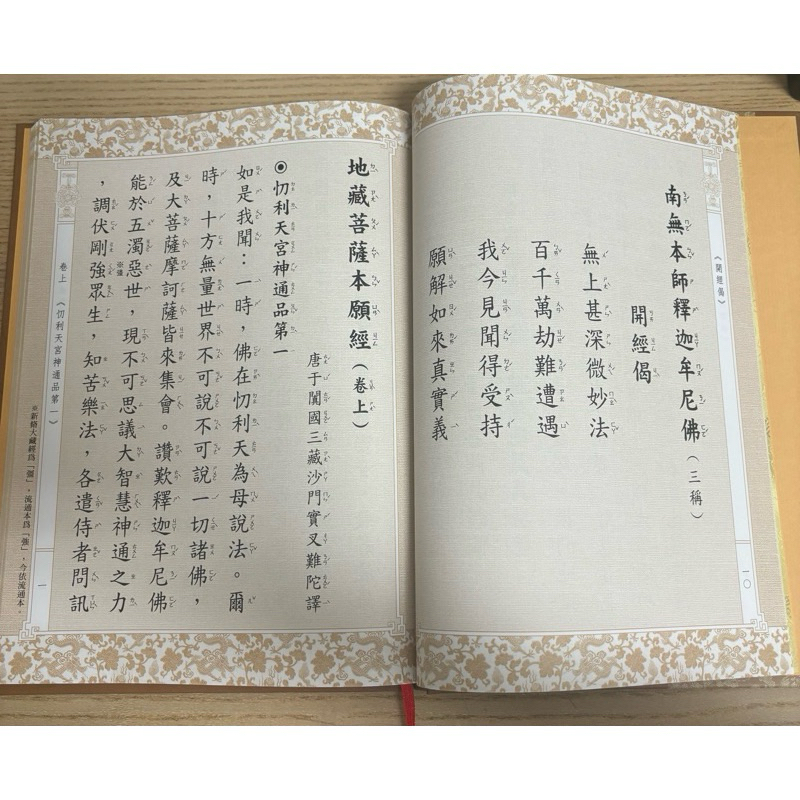 《開經偈》
南無本師釋迦牟尼佛（三稱）
開經偈
無上甚深微妙法
百千萬劫難遭遇
我今見聞得受持
願解如來真實義
一〇
地藏菩薩本願經（卷上）
唐于闐國三藏沙門實叉難陀譯
◉忉利天宮神通品第一
如是我聞：一時，佛在忉利天為母說法。爾
時，十方無量世界不可說不可說一切諸佛，
及大菩薩摩訶薩皆來集會。讚歎釋迦牟尼佛
能於五濁惡世，現不可思議大智慧神通之力
，調伏剛強眾生，知苦樂法，各遣侍者問訊
卷上 《忉利天宮神通品第一》
一